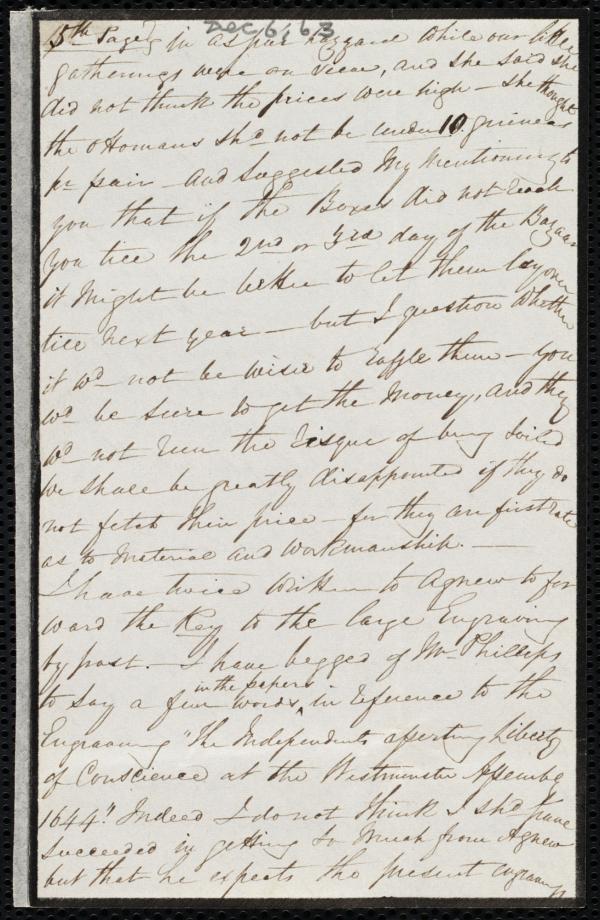 Dec 6, 63
5th Page} in as pur hazzard while our little
gatherings were on view, and she said she
did not think the prices were high - she thought
the Ottomans shd not be under 10 guineas
pr pair - and suggested my mentioning to
you that if the Boxes did not reach
you till the 2nd or 3rd day of the Bazaar
it might be better to let them lay over
till next year - but I question whether
it wd not be wiser to raffle them - you
wd be sure to get the money, and they
wd not run the risque of being soiled
we shall be greatly disappointed if they do
not fetch their price - for they are first rate
as to material and workmanship. -
I have twice written to Agnew to for
ward the Key to the large Engraving
by post. - I have begged of Mr Phillips
in the papers
to say a few words ^ in reference to the
Engraving "The Independents asserting Liberty
of Conscience at the Westminster Assembly
1644". Indeed I do not think I shd have
succeeded in getting so much from Agnew
but that he expects the present engraving